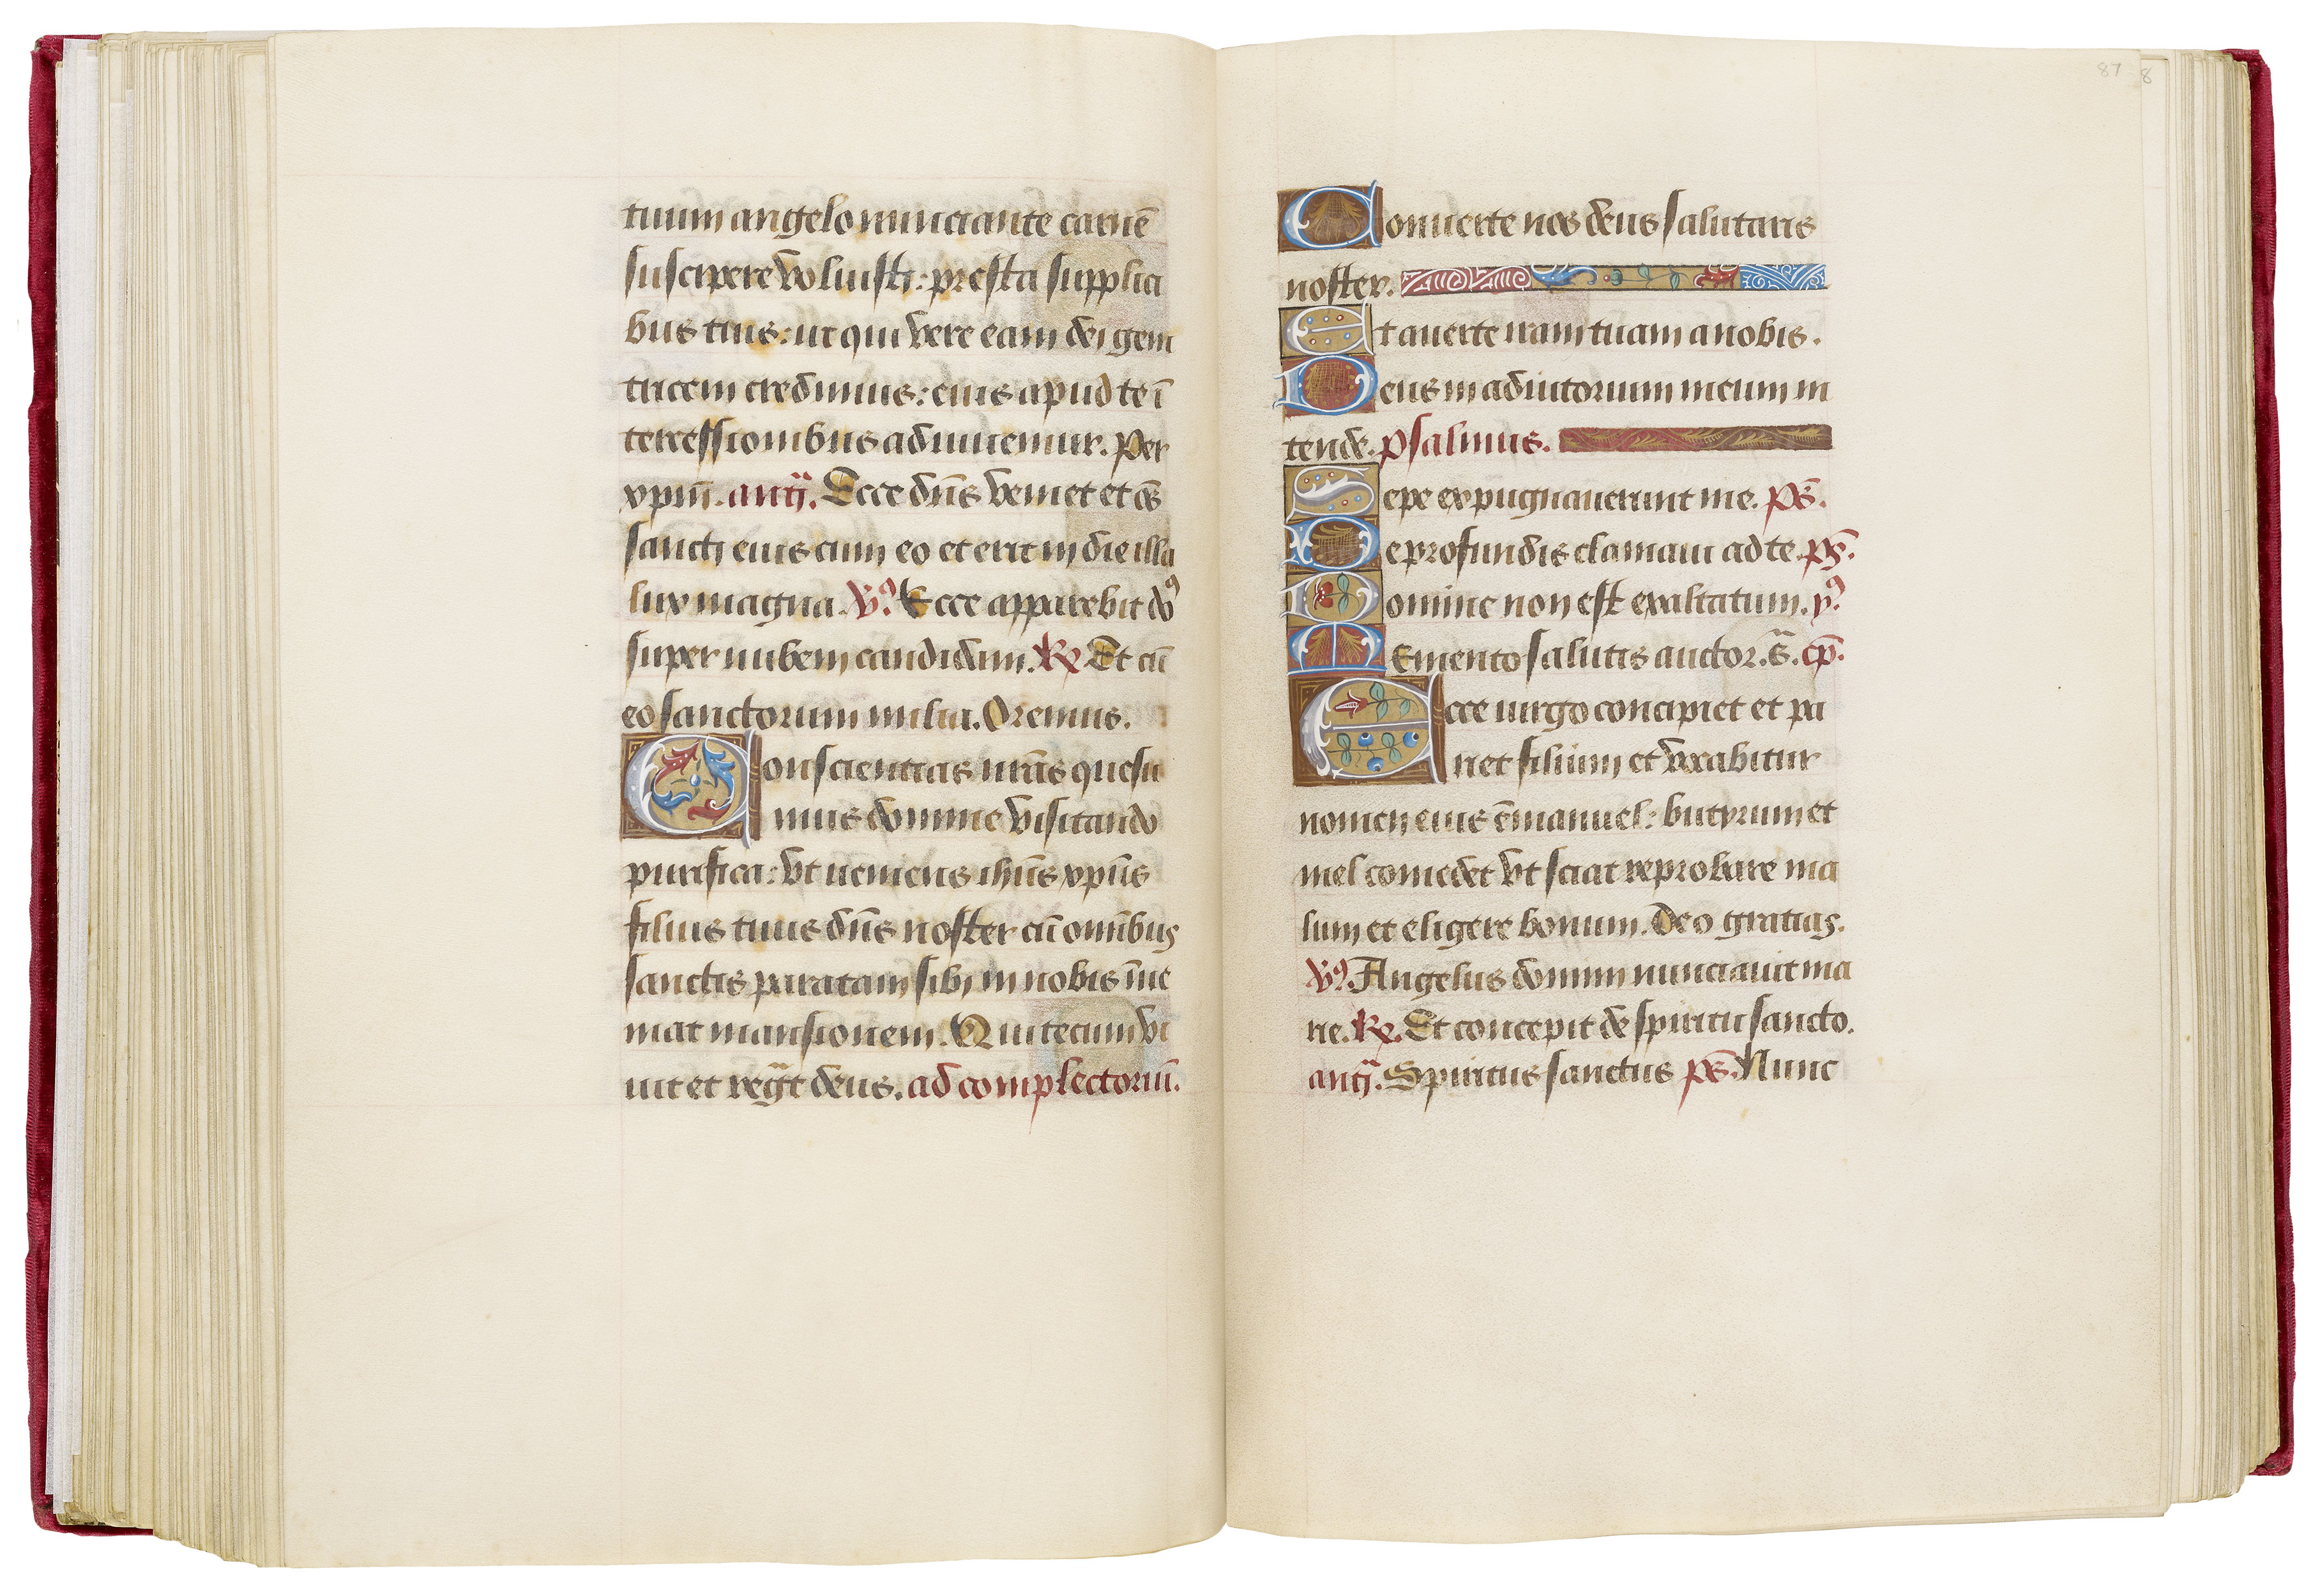 tuum angelo nunciante carnē
suscipere voluisti: presta supplici
bus tuis: ut qui vere eam dei geni
tricem credimus: eius apud te ī
tercessionibus adiuuemur. Per
xpm̄. antͥ. Ecce dn̄s veniet et om̄s
sancti eius cum eo et erit in die illa
lux magna. V⁹. Ecce apparebit do⁹
super nubem candidam. R. Et cū
eo sanctorum milia. Oremus.
Conscientias nr̄as quesu
mus domine visitando
purifica: vt ueniens ihūs xpūs
filius tuus dn̄s noster cū omībus
sanctis paratam sibi in nobis īue
niat mansionem. Qui tecum vi
uit et regͣt deus. ad complectoriū.
87 8
Conuerte nos deus salutaris
noster.
Et auerte iram tuam a nobis.
Deus in adiutorium meum in
tende. psalmus.
Sepe expugnauerunt me. ps̄.
De profundis clamaui ad te. ps̄.
Domine non est exaltatum. y⁹.
Memento salutis auctor. Gͣ. cp̄.
Ecce uirgo concipiet et pa
riet filium et vocabitur
nomen eius ēmanuel: butyrum et
mel comedet vt sciat reprobare ma
lum et eligere bonum. Deo gratias.
V⁹. Angelus domini nunciauit ma
rie. R. Et concepit de spiritu sancto.
antͥ. Spiritus sanctus ps̄. Nunc